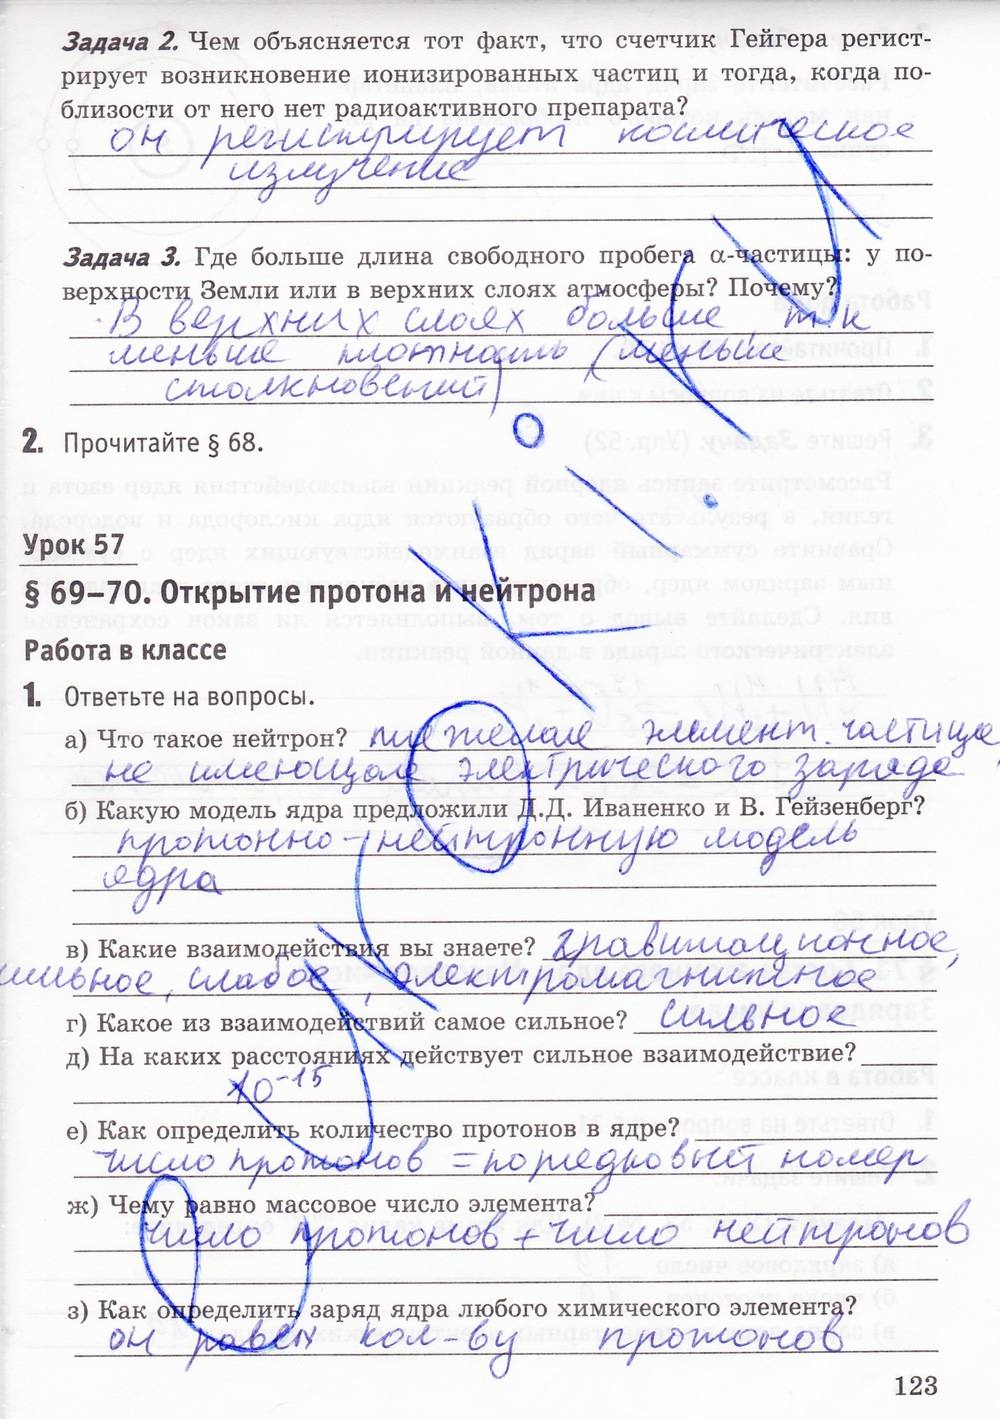 Задача 2. Чем объясняется тот факт, что счетчик Гейгера регист-
рирует возникновение ионизированных частиц и тогда, когда по-
близости от него нет радиоактивного препарата?
он регистрирует космическое
излучение
Задача 3. Где больше длина свободного пробега α-частицы: у по-
верхности Земли или в верхних слоях атмосферы? Почему?
В верхних слоях больше, т.к
меньше плотность (меньше
столкновений)
2. Прочитайте § 68.
Урок 57
§ 69–70. Открытие протона и нейтрона
Работа в классе
1. Ответьте на вопросы.
а) Что такое нейтрон? тяжелая элемент. частица
не имеющая электрического заряда
б) Какую модель ядра предложили Д.Д. Иваненко и В. Гейзенберг?
протонно-нейтронную модель
ядра
в) Какие взаимодействия вы знаете? гравитационное,
сильное, слабое, электромагнитное
г) Какое из взаимодействий самое сильное? сильное
д) На каких расстояниях действует сильное взаимодействие?
10⁻¹⁵
е) Как определить количество протонов в ядре?
число протонов = порядковый номер
ж) Чему равно массовое число элемента?
число протонов + число нейтронов
з) Как определить заряд ядра любого химического элемента?
он равен кол-ву протонов
123